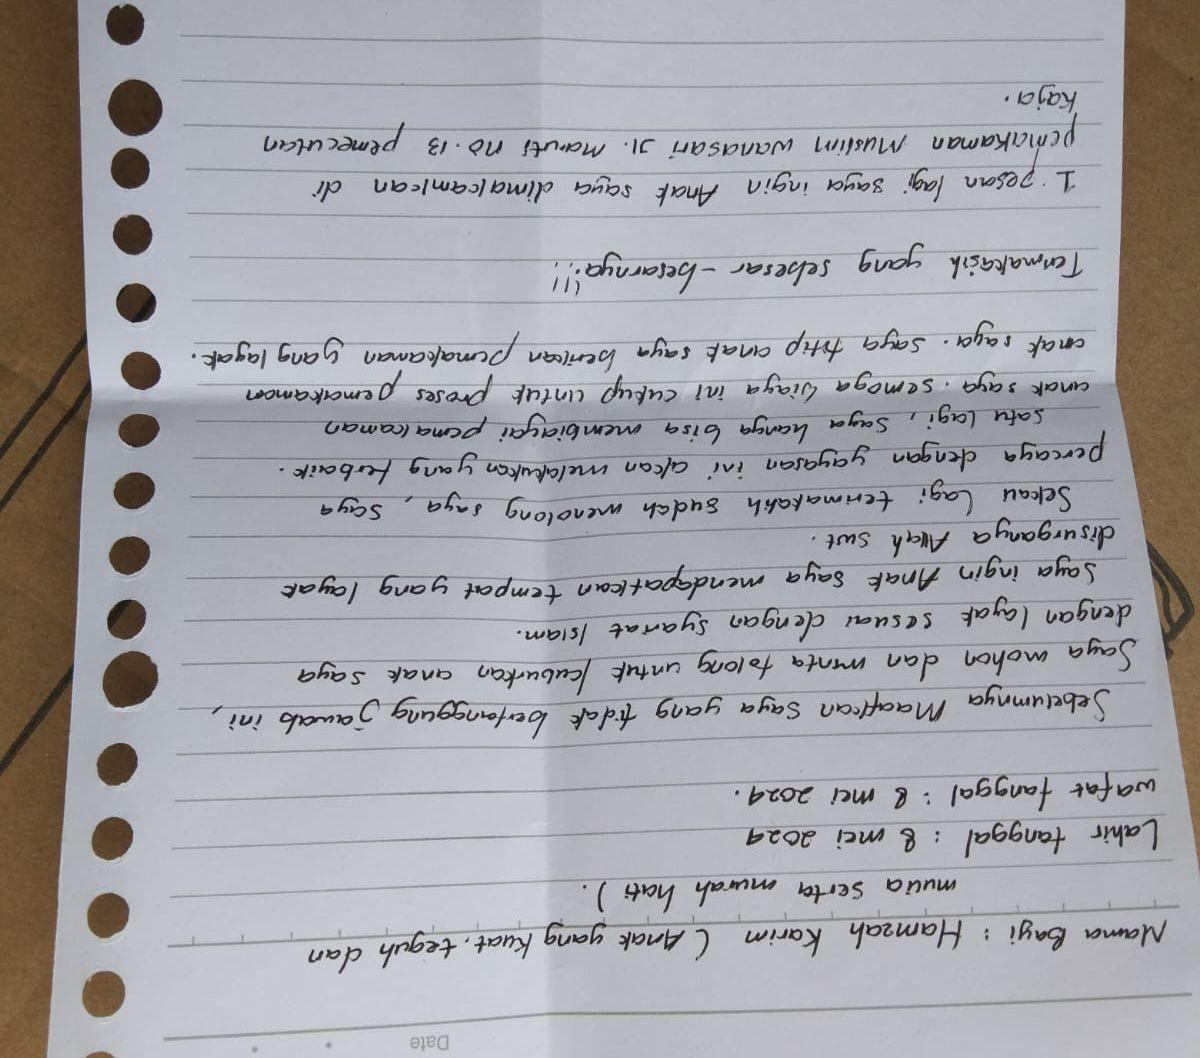 Date
Nama Bayi : Hamzah Karim ( Anak yang kuat, teguh dan
mulia serta murah hati ).
Lahir tanggal : 8 mei 2024
wafat tanggal : 8 mei 2024.
Sebelumnya Maafkan saya yang tidak bertanggung jawab ini,
Saya mohon dan minta tolong untuk kuburkan anak saya
dengan layak sesuai dengan syariat Islam.
Saya ingin Anak saya mendapatkan tempat yang layak
disurganya Allah swt.
Sekali lagi terimakasih sudah menolong saya, saya
percaya dengan yayasan ini akan melakukan yang terbaik.
satu lagi, saya hanya bisa membiayai pemakaman
anak saya. semoga biaya ini cukup untuk proses pemakaman
anak saya. saya titip anak saya berikan pemakaman yang layak.
Terimakasih yang sebesar-besarnya.!!!
1. pesan lagi saya ingin Anak saya dimakamkan di
pemakaman Muslim wanasari Jl. Maruti no.13 pemecutan
Kaja.